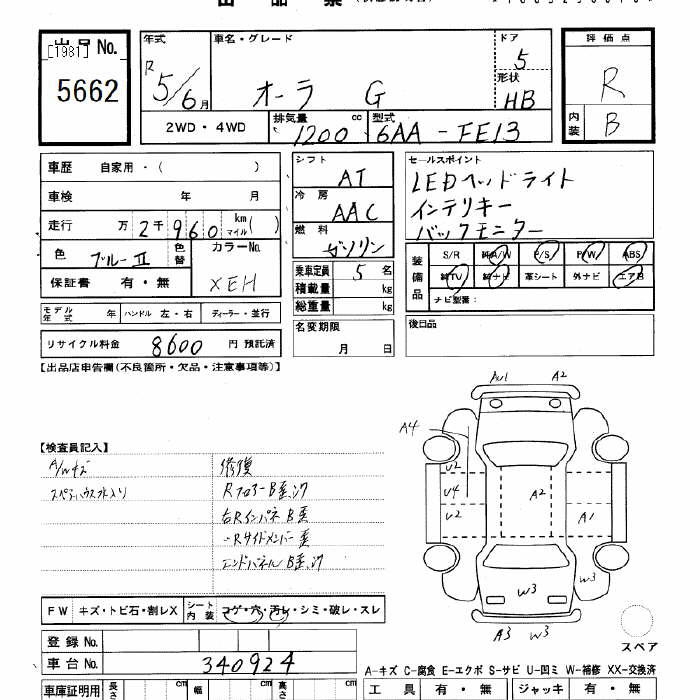 出品票
出品 No. [1981]
5662
年式 R 5/6月
車名・グレード オーラ G
ドア 5
形状 HB
評価点 R
内装 B
2WD・4WD
排気量 1200 cc
型式 6AA-FE13
車歴 自家用・( )
車検 年 月
走行 万 2千960 km マイル( )
色 ブルーⅡ 色替
カラーNo. XEH
保証書 有・無
モデル年式 年 ハンドル 左・右 ディーラー・並行
リサイクル料金 8600 円 預託済
シフト AT
冷房 AAC
燃料 ガソリン
乗車定員 5 名
積載量 kg
総重量 kg
名変期限 月 日
セールスポイント
LEDヘッドライト
インテリキー
バックモニター
装備品
S/R 純A/W P/S P/W ABS
純TV 純ナビ 革シート 外ナビ エアB
ナビ型番:
後日品
【出品店申告欄(不良箇所・欠品・注意事項等)】
【検査員記入】
A/Wキズ
修復
Rフロアー B歪、汁
右Rインパネ B歪
〃Rサイドメンバー歪
エンドパネル B歪、汁
AU1 A2
A4
U2
U4
U2
A2
A1
W3
W3
A3 W3
スペア
FW キズ・トビ石・割レX
シート内装 コゲ・穴・汚レ・シミ・破レ・スレ
登録 No.
車台 No. 340924
A-キズ C-腐食 E-エクボ S-サビ U-凹ミ W-補修 XX-交換済
車庫証明用 長さ cm 幅 cm 高さ cm
工具 有・無 ジャッキ 有・無